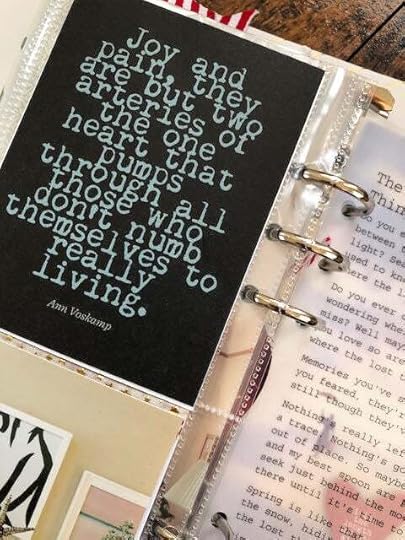 Joy and
pain, they
are but two
arteries of
the one
heart that
pumps
through all
those who
don't numb
themselves to
really
living.
Ann Voskamp
The
Do you e
between
light? See
used to kn
ere the l
Do you ever
wondering whe
miss? Well may
you love so are
where the lost t
Memories you've s
you feared, they'r
still though they'v
Nothing's really lef
a trace. Nothing's go
out of place. So maybe
and my best spoon are
seek just behind the moo
there until it's time to
Spring is like that
the snow, hidi
the lost th